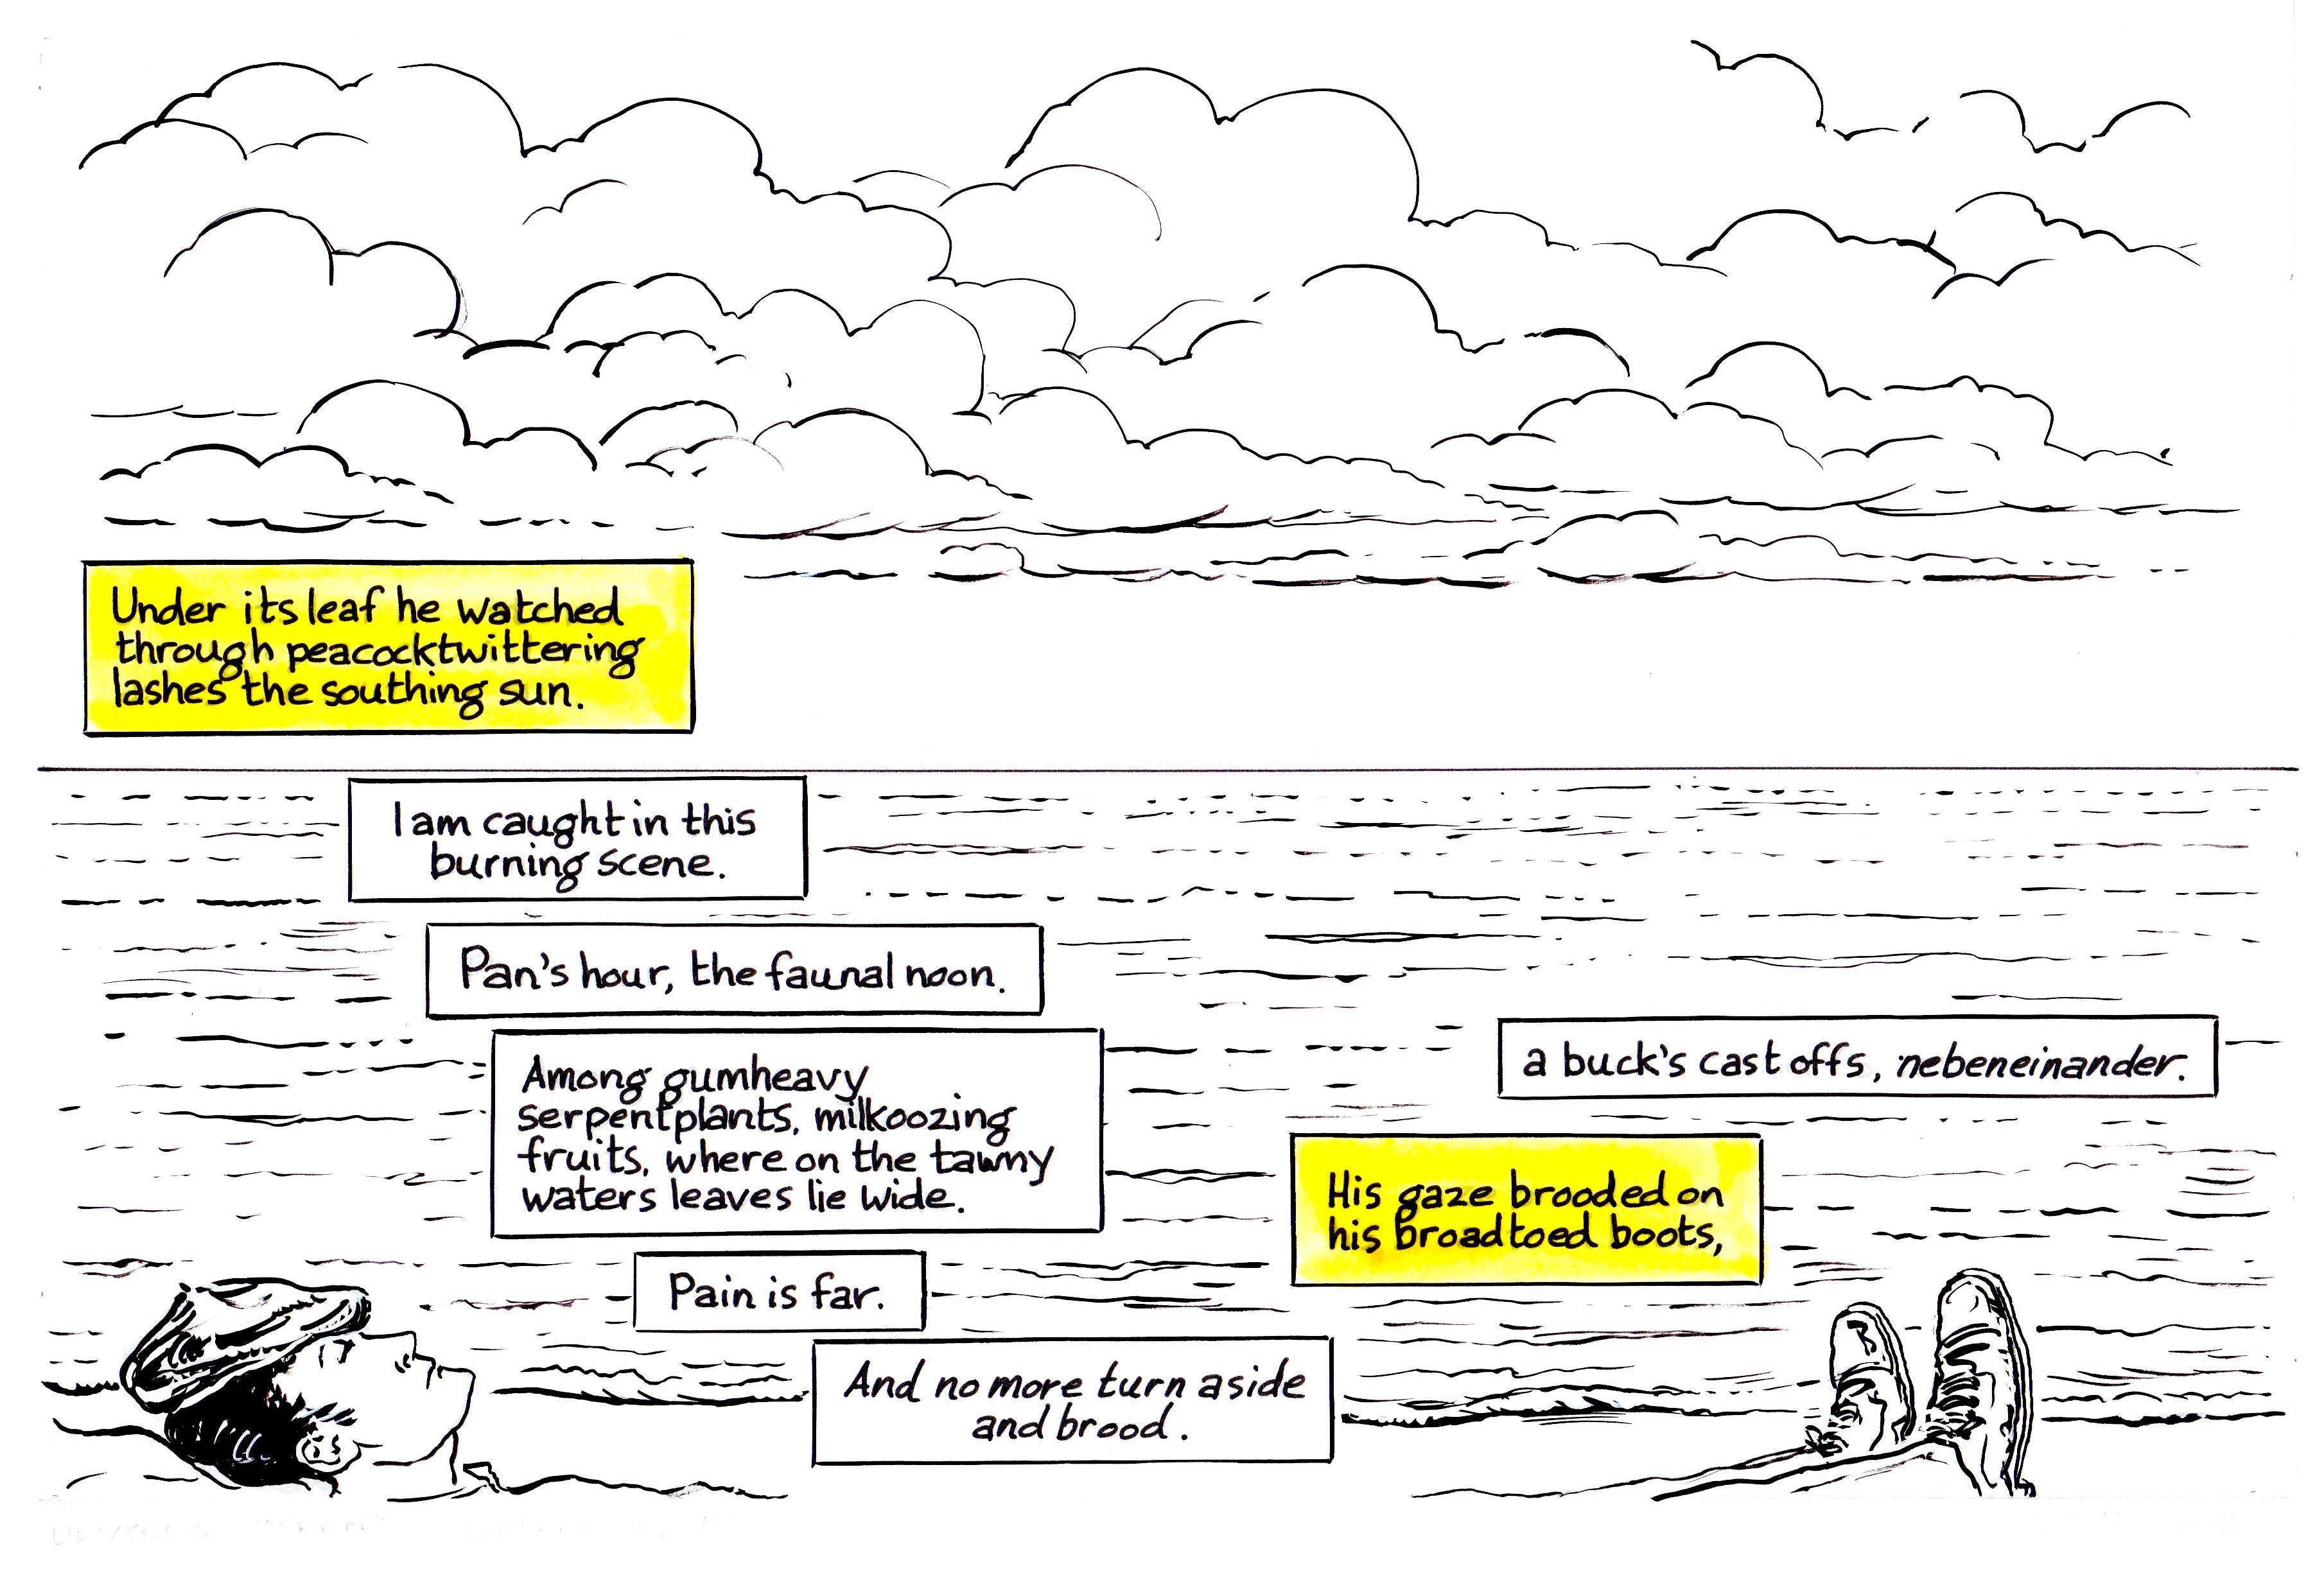 Under its leaf he watched
through peacocktwittering
lashes the southing sun.
I am caught in this
burning scene.
Pan's hour, the faunal noon.
Among gumheavy
serpentplants, milkoozing
fruits, where on the tawny
waters leaves lie wide.
Pain is far.
And no more turn aside
and brood.
His gaze brooded on
his broadtoed boots,
a buck's castoffs, nebeneinander.